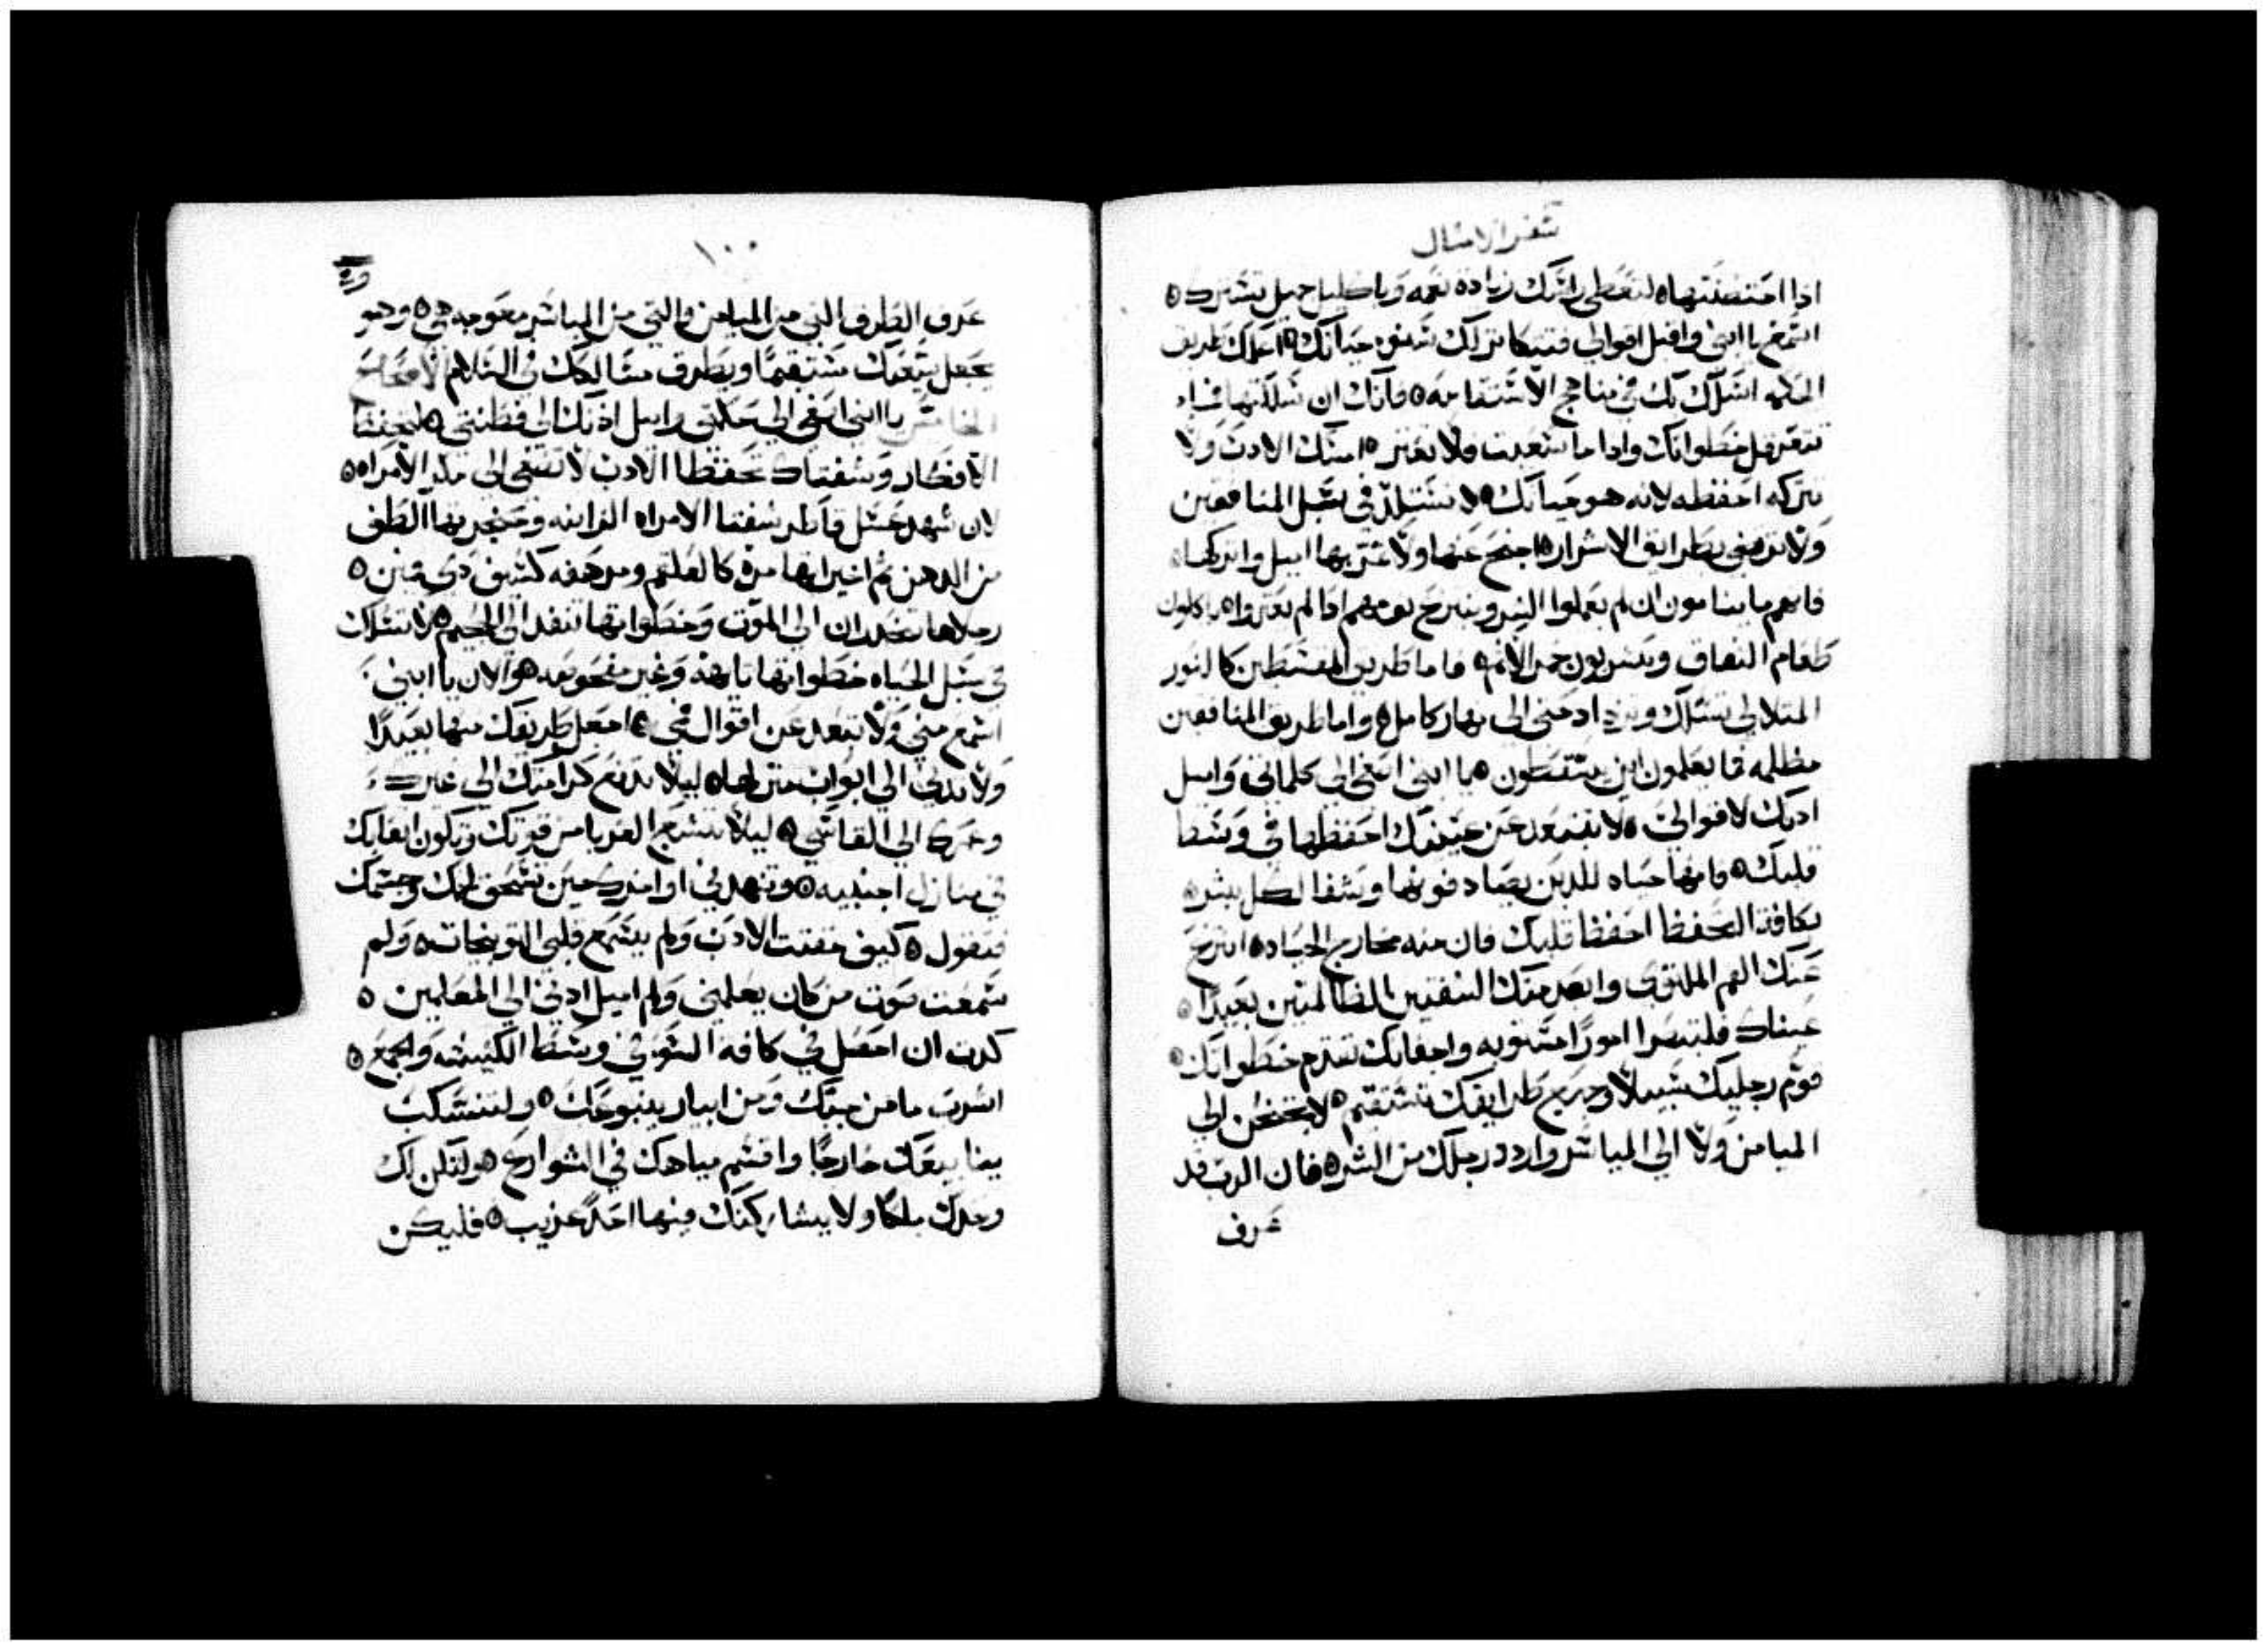 سفر الامثال
اذا احتضنتها ٥ لتعطى راسك زيادة نعمه وباكليل جميل تسترك ٥
اسمع يا ابنى واقبل اقوالي فتتكاثر لك سنين حياتك ٥ اعلمك طريق
الحكمه اسلك بك في مناهج الاستقامه ٥ فانك ان سلكتها
خطواتك واذا ما سعيت فلا تعثر ٥ امسك الادب ولا
تتركه احفظه لانه هو حياتك ٥ لا تستلذ في سبل المنافقين
ولا ترتضي بطرايق الاشرار ٥ اجنح عنها ولا تمر بها اميل واتركها
فانهم ما ينامون ان لم يعملوا الشر وينزح نومهم اذا لم يعثروا ٥ ياكلون
طعام النفاق ويشربون خمر الاثم ٥ فاما طريق المقسطين كالنور
المتلالي تسلك وتزداد حتى الى نهار كامل ٥ واما طريق المنافقين
مظلمه فما يعلمون اين يسقطون ٥ يا ابنى اصغى الى كلماتي واميل
اذنك لاقوالي ٥ لا تبتعد عن عينيك احفظها في وسط
قلبك ٥ فانها حياه للذين يصادفونها وشفا لكل بشر ٥
بكافة التحفظ احفظ قلبك فان منه مخارج الحياه ٥ انزع
عنك الفم الملتوى وابعد منك الشفتين الظالمتين بعيدًا ٥
عيناك فلتبصرا امورًا مستويه واجفانك تتقدم خطواتك ٥
قوّم رجليك سبيلًا وجميع طرايقك تستقيم ٥ لا تجنحن الى
الميامن ولا الي المياسر واردد رجلك من الشر ٥ فان الرب قد
عرف
١٠٠
عرف الطرق التي من الميامن والتي من المياسر معوجه هي ٥ وهو
يجعل سعيك مستقيمًا وبطرق مسالكك في السلام الاصحاح
الخامس يا ابني اصغي الى حكمتى واميل اذنك الى فطنتي ٥ لتحفظ
الافكار وشفتاك تحفظا الادب لا تصغى الى مكر الامراه ٥
لان شهد عسل قاطر شفتا الامراه الزانيه وحنجرتها الطف
من الدهن ثم اخيراتها مرة كالعلقم ومرهفه كسيف ذي فمين ٥
رجلاها تنحدران الى الموت وخطواتها تنفد الى الجحيم ٥ لا تسلك
في سبل الحياه خطواتها تايهه وغير مفحوصه ٥ والان يا ابني
اسمع مني ولا تبتعد عن اقوال فمي ٥ اجعل طريقك منها بعيدًا
ولا تدني الي ابواب منزلها ٥ ليلا تدفع كرامتك الي غيرك
وعمرك الي القاسي ٥ ليلا تتشبع الغربا من قوتك وتكون اتعابك
في منازل اجنبيه ٥ وتنهد في اواخرك حين تنسحق لحمك وجسمك
فتقول ٥ كيف مقتت الادب ولم يسمع قلبي التوبيخات ٥ ولم
سمعت صوت من كان يعلمني ولم اميل اذني الي المعلمين ٥
كدت ان احصل في كافه السو في وسط الكنيسه والجمع ٥
اشرب ما من جبك ومن ابيار ينبوعك ٥ ولتنسكب
ينابيعك خارجًا واقسم مياهك في الشوارع ٥ ولتكن لك
وحدك ملكًا ولا يشاركنك فيها احدًا غريب ٥ فليكن